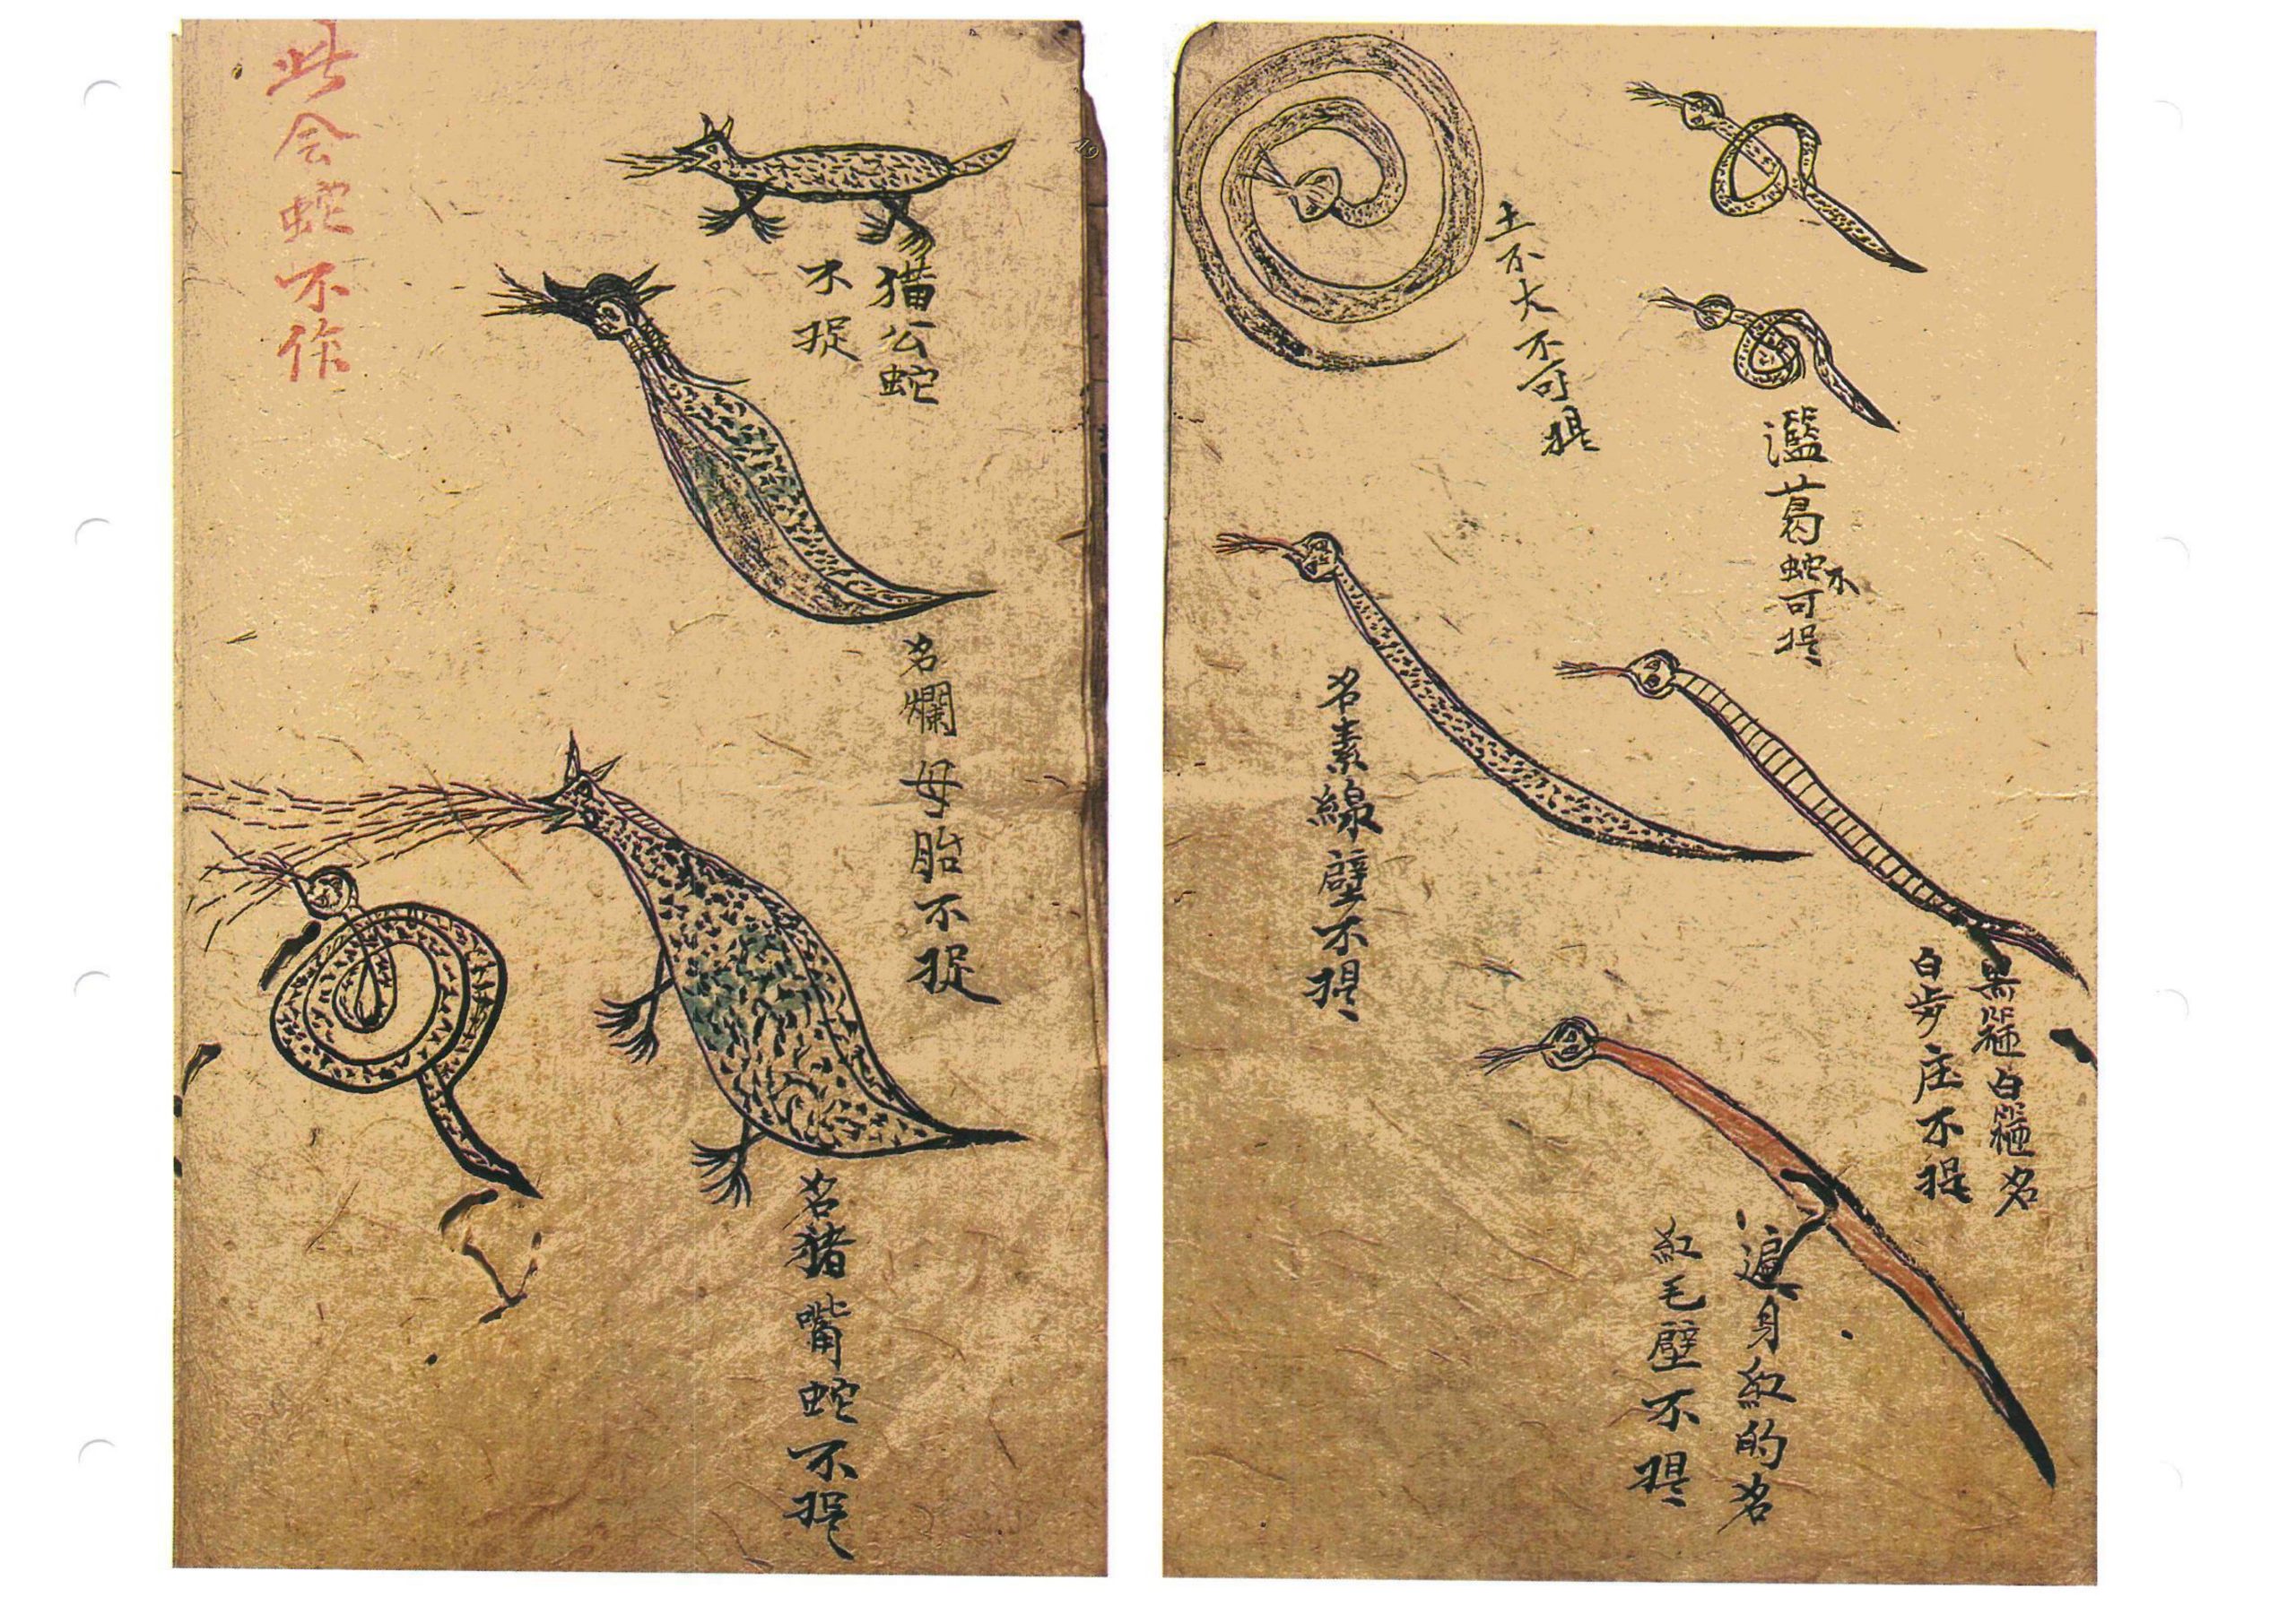 土不大不可捉
濫葛蛇不可捉
名素線壁不捉
黑箍白箍名
白步庄不捉
遍身紅的名
紅毛壁不捉
19
猫公蛇
不捉
名爛母胎不捉
名猪嘴蛇不捉
此会蛇不作